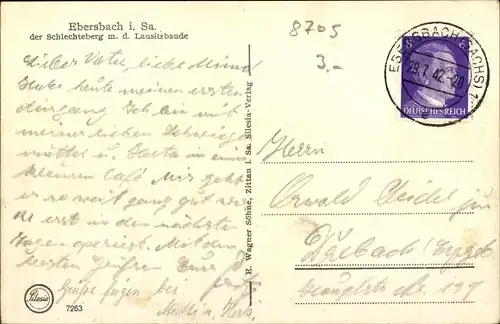 Ebersbach i. Sa.
der Schlechteberg m. d. Lausitzbaude
8705
3.-
EBERSBACH (SACHS) 1
29.7.42.-20
DEUTSCHES REICH
Lieber Vater, liebe Minna
Habe heute meinen ersten
Ausgang. Ich bin mit
meiner lieben Schwieger
mutter u. Herta in einem
kleinen Café. Mir geht
es so weit ganz gut
erst in den nächsten
Tagen operiert. Mit den
besten Grüßen Euer
Grüße fügen bei
Herta
Herrn
Oswald Seidel
(Erzgeb
Hauptstr. Nr. 127
H. Wagner Söhne, Zittau i. Sa. Silesia-Verlag
Silesia
7263